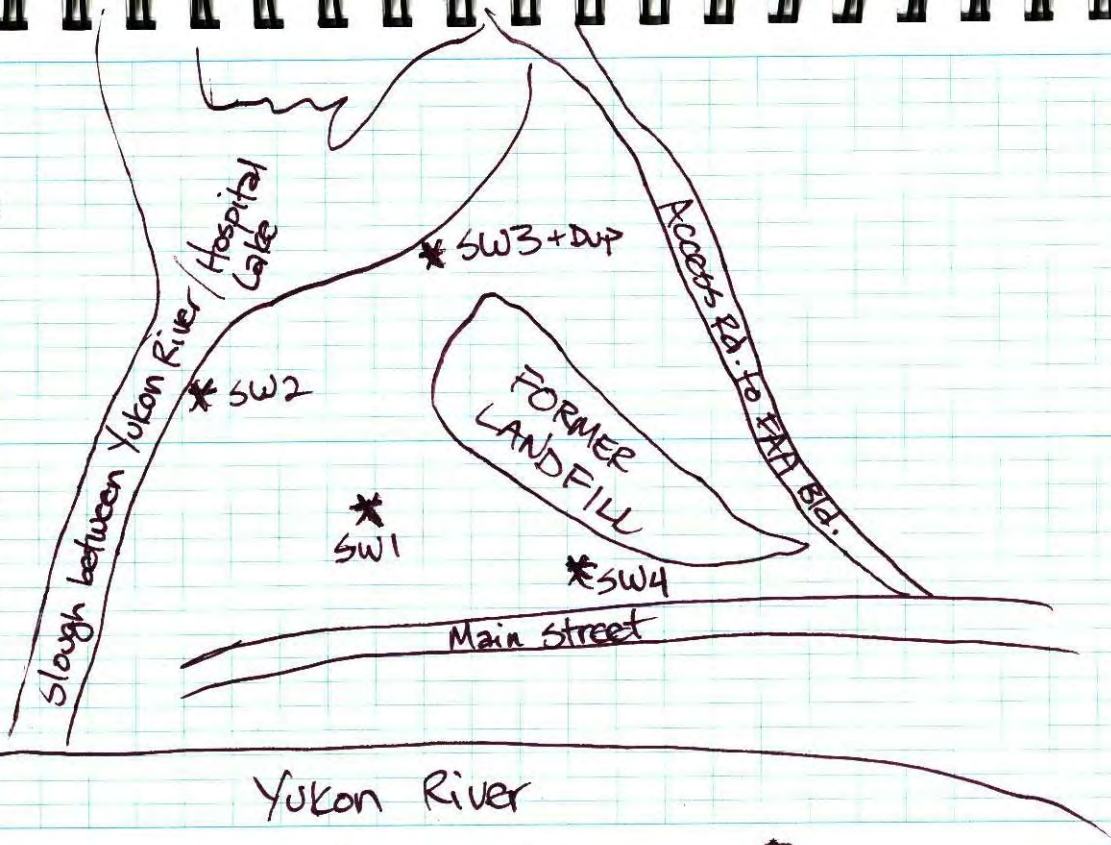 Slough between Yukon River / Hospital
Lake
* SW3 + Dup
Access Rd. to FAA Bld.
* SW2
FORMER
LANDFILL
*
SW1
* SW4
Main Street
Yukon River